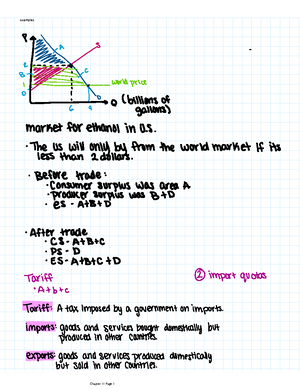 P
A
S
2
B
C
1
world price
D
0
6
9
Q (billions of
gallons)
market for ethanol in U.S.
· The US will only by from the world market if its
less than 2 dollars.
· Before trade:
· Consumer surplus was area A
· Producer surplus was B+D
· ES - A+B+D
· After trade
· CS - A+B+C
· PS - D
· ES - A+B+C+D
Tariff
· A+b+c
② import quotas
Tariff: A tax imposed by a government on imports.
imports: goods and services bought domestically but
produces in other countries.
exports: goods and services produced domestically
but sold in other countries.
Chapter 9 Page 1